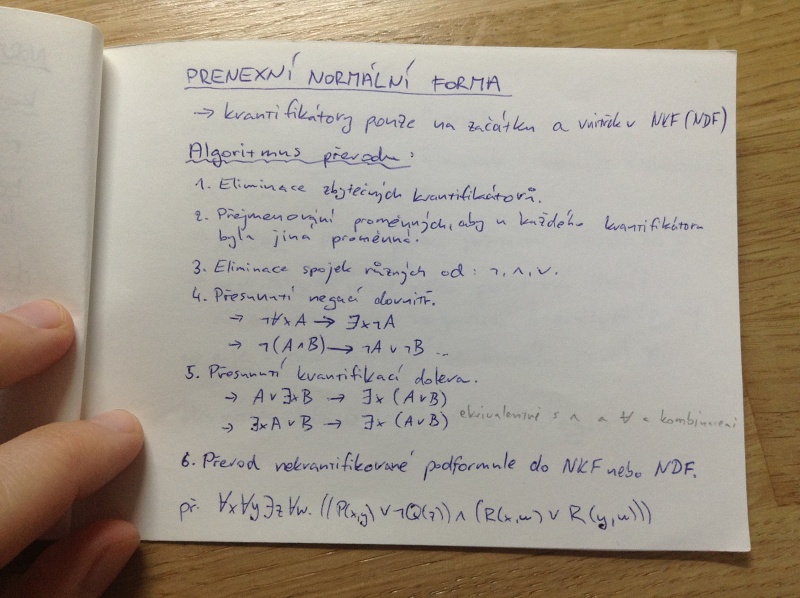 PRENEXNÍ NORMÁLNÍ FORMA
→ kvantifikátory pouze na začátku a vnitřek v NKF (NDF)
Algoritmus převodu:
1. Eliminace zbytečných kvantifikátorů.
2. Přejmenování proměnných, aby u každého kvantifikátoru
byla jiná proměnná.
3. Eliminace spojek různých od: ¬, ∧, ∨.
4. Přesunutí negací dovnitř.
→ ¬∀xA → ∃x¬A
→ ¬(A∧B) → ¬A ∨ ¬B ...
5. Přesunutí kvantifikací doleva.
→ A ∨ ∃xB → ∃x (A∨B)
→ ∃xA ∨ B → ∃x (A∨B) ekvivalentně s ∧ a ∀ a kombinacemi
6. Převod nekvantifikované podformule do NKF nebo NDF.
př. ∀x∀y∃z∀w. ((P(x,y) ∨ ¬Q(z)) ∧ (R(x,w) ∨ R(y,w)))